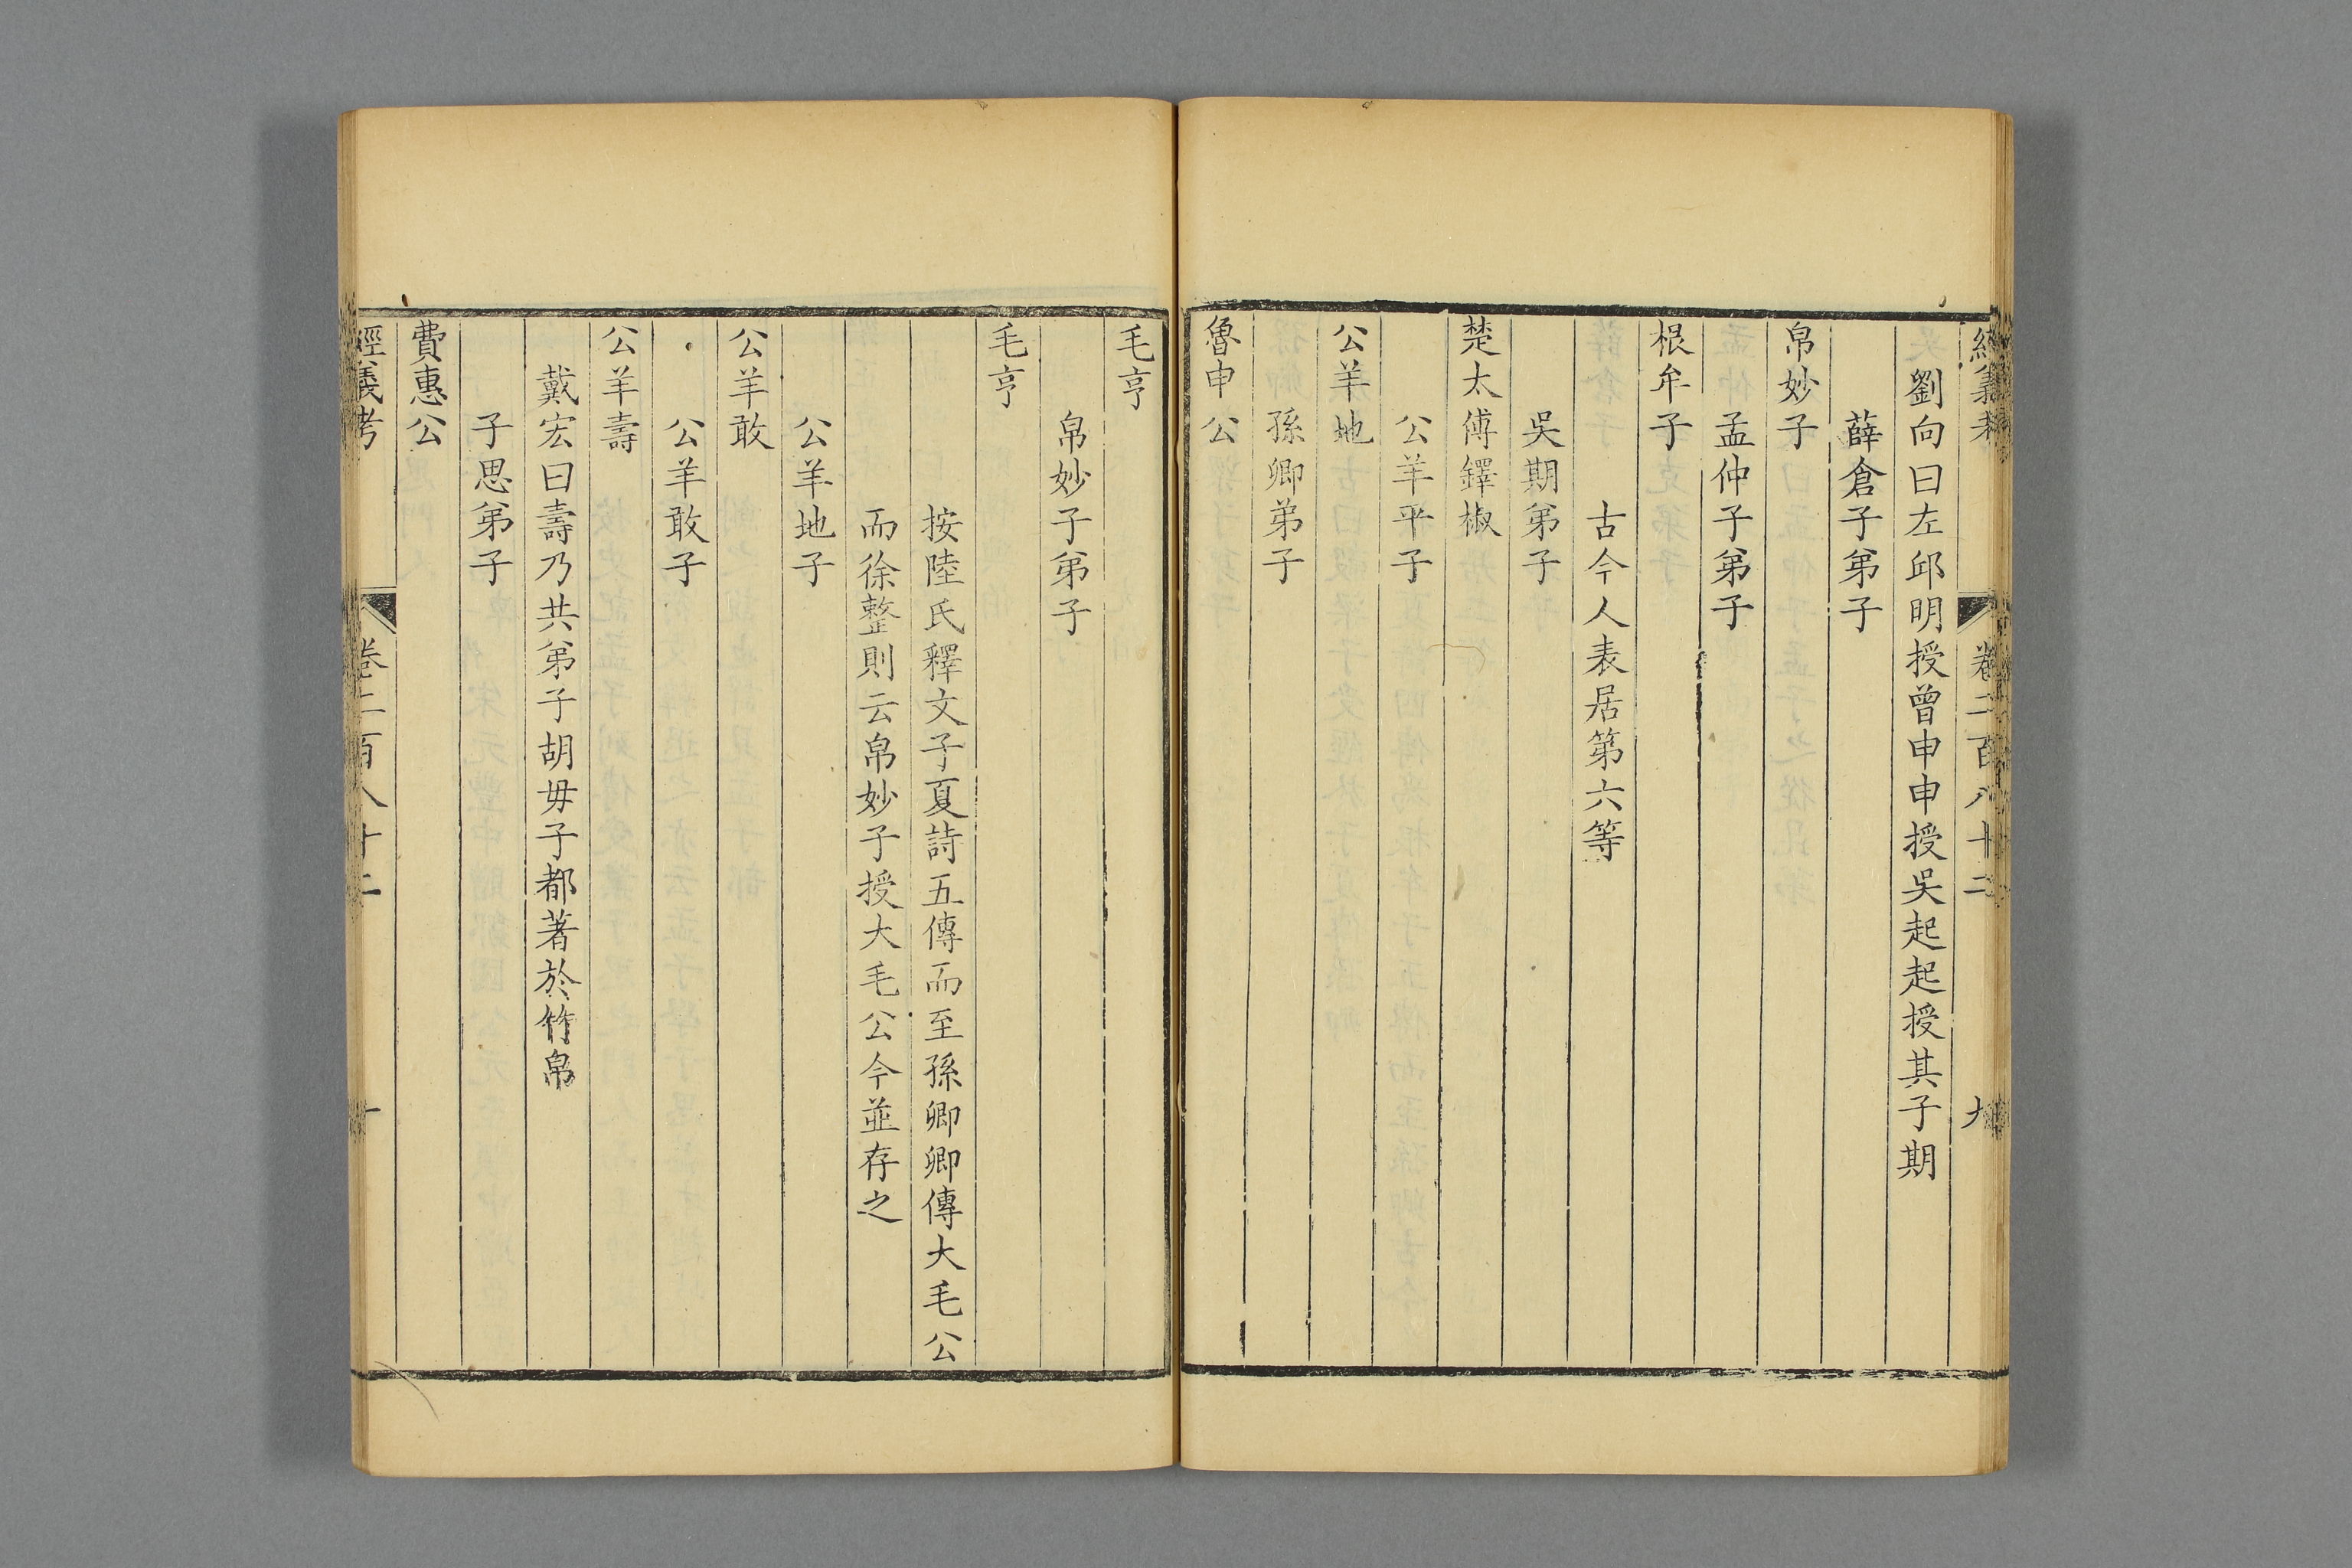 經義考 卷二百八十二 九
劉向曰左邱明授曾申申授吳起起授其子期
薛倉子弟子
帛妙子
孟仲子弟子
根牟子
古今人表居第六等
吳期弟子
楚太傅鐸椒
公羊平子
公羊地
孫卿弟子
魯申公
毛亨
帛妙子弟子
毛亨
按陸氏釋文子夏詩五傳而至孫卿卿傳大毛公
而徐整則云帛妙子授大毛公今並存之
公羊地子
公羊敢
公羊敢子
公羊壽
戴宏曰壽乃共弟子胡毋子都著於竹帛
子思弟子
費惠公
經義考 卷二百八十二 十